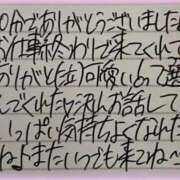 0分でありがとうございました
お仕事終わりで来てくれて
ありがと 何度いめで選
んでくれたか沢山お話して
いっぱい気持ちよくなれた
ねまたいつでも来てね〜